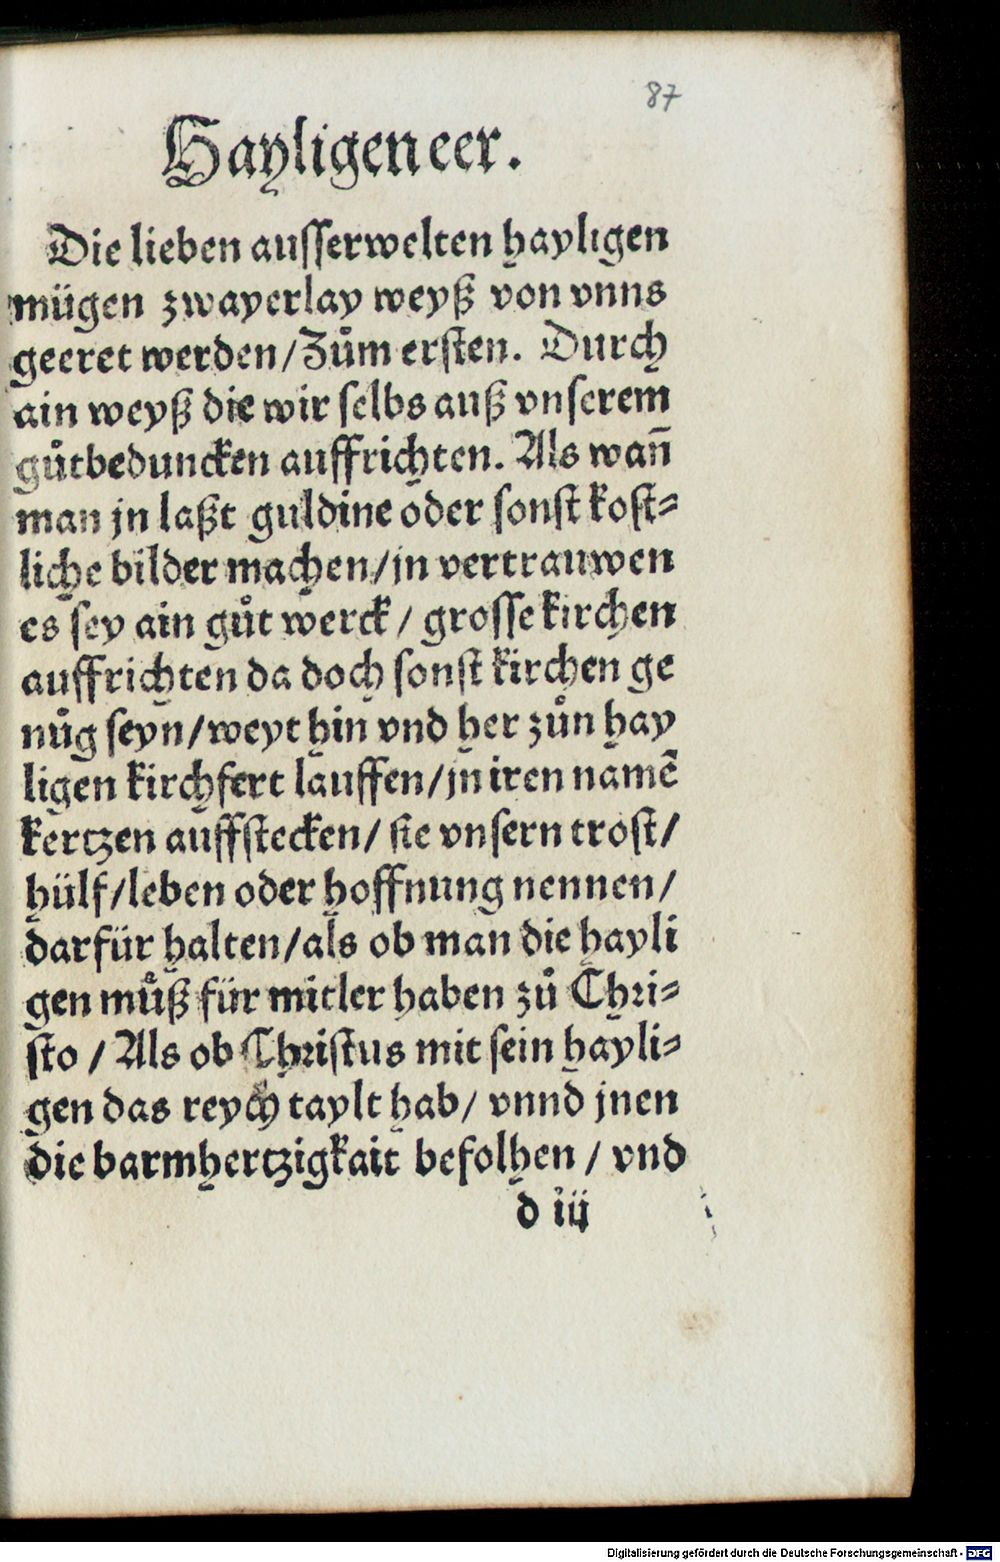 87
Hayligen eer.
Die lieben ausserwelten hayligen
mügen zwayerlay weyß von vnns
geeret werden/Zům ersten. Durch
ain weyß die wir selbs auß vnserem
gůtbeduncken auffrichten. Als wan̄
man jn laßt guldine oder sonst kost⸗
liche bilder machen/jn vertrauwen
es sey ain gůt werck/ grosse kirchen
auffrichten da doch sonst kirchen ge
nůg seyn/weyt hin vnd her zůn hay
ligen kirchfert lauffen/jn iren namē
kertzen auffstecken/ sie vnsern trost/
hülf/leben oder hoffnung nennen/
darfür halten/als ob man die hayli
gen můß für mitler haben zů Chri⸗
sto / Als ob Christus mit sein hayli⸗
gen das reych taylt hab/ vnnd jnen
die barmhertzigkait befolhen / vnd
d iij
Digitalisierung gefördert durch die Deutsche Forschungsgemeinschaft - DFG